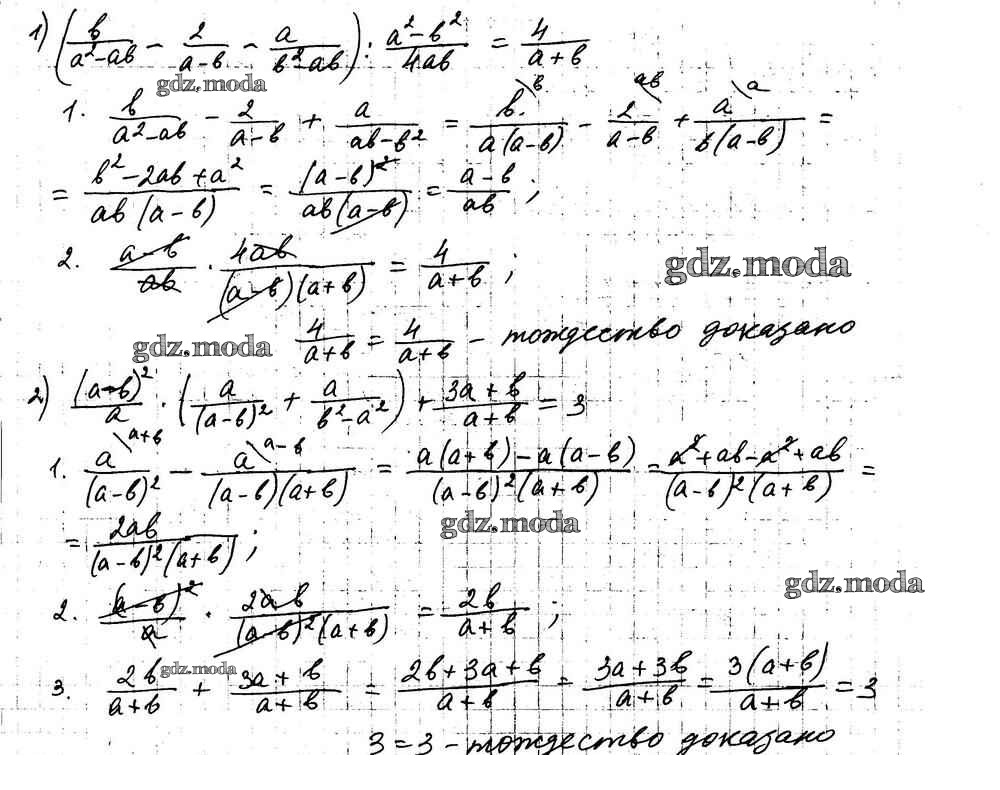 1) (b/(a²-ab) - 2/(a-b) - a/(b²-ab)) : (a²-b²)/(4ab) = 4/(a+b)
gdz.moda
1. b/(a²-ab) - 2/(a-b) + a/(ab-b²) = b\b/(a(a-b)) - 2\ab/(a-b) + a\a/(b(a-b)) =
= (b²-2ab+a²)/(ab(a-b)) = (a-b)²/(ab(a-b)) = (a-b)/(ab) ;
2. (a-b)/(ab) · 4ab/((a-b)(a+b)) = 4/(a+b) ;
gdz.moda
4/(a+b) = 4/(a+b) - тождество доказано
gdz.moda
2) (a-b)²/a · (a/(a-b)² + a/(b²-a²)) + (3a+b)/(a+b) = 3
1. a\a+b/(a-b)² - a\a-b/((a-b)(a+b)) = (a(a+b)-a(a-b))/((a-b)²(a+b)) = (a²+ab-a²+ab)/((a-b)²(a+b)) =
gdz.moda
= 2ab/((a-b)²(a+b)) ;
gdz.moda
2. (a-b)²/a · 2ab/((a-b)²(a+b)) = 2b/(a+b) ;
gdz.moda
3. 2b/(a+b) + (3a+b)/(a+b) = (2b+3a+b)/(a+b) = (3a+3b)/(a+b) = 3(a+b)/(a+b) = 3
3=3 - тождество доказано